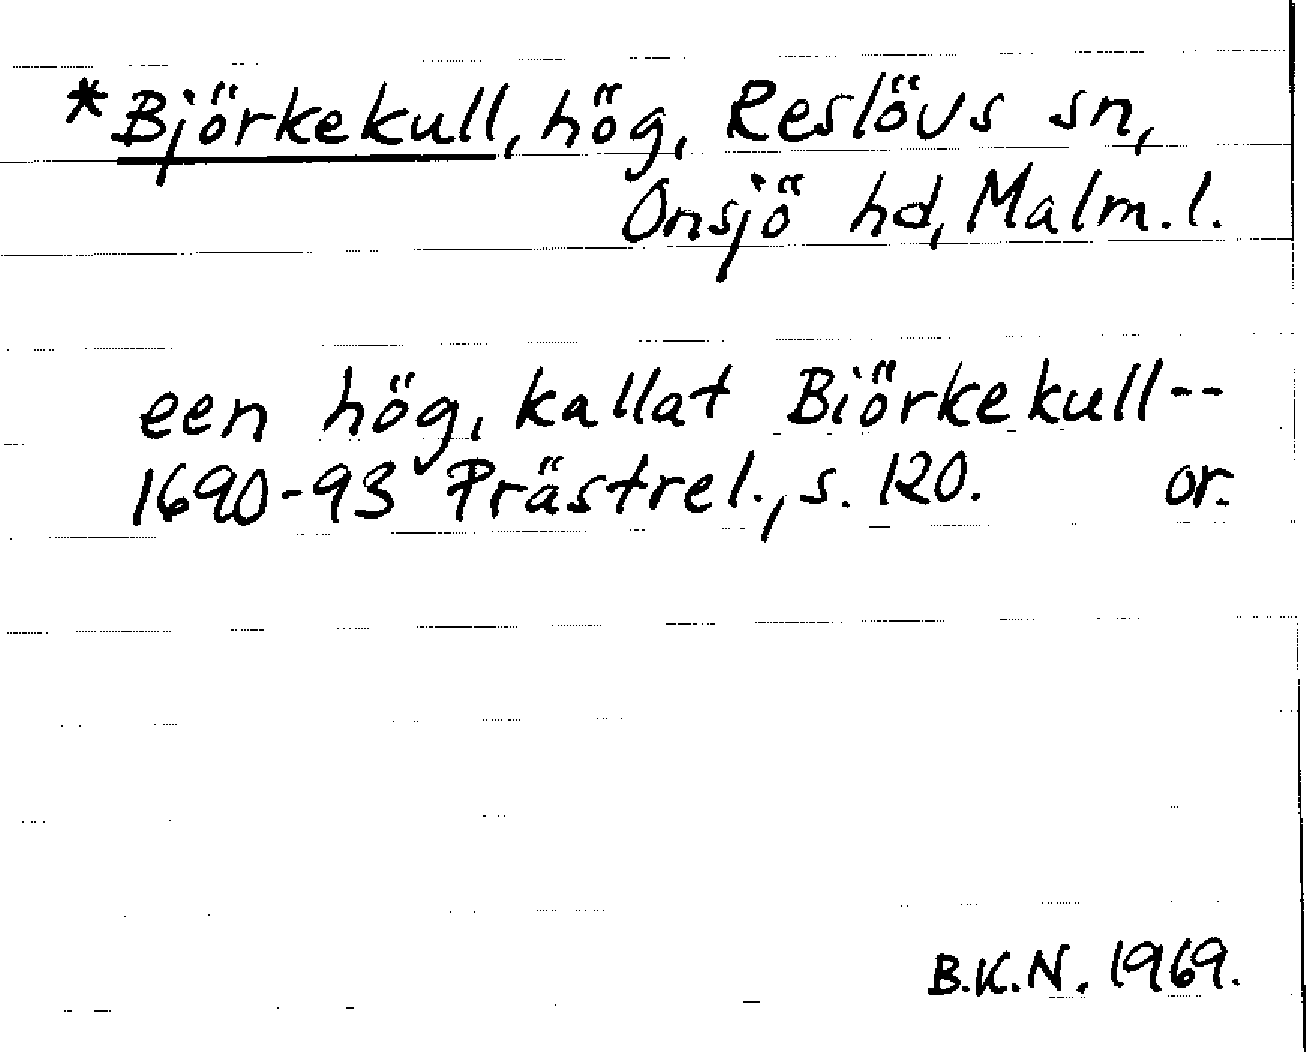 *Björkekull, hög, Reslövs sn,
Onsjö hd, Malm. l.
een hög, kallat Biörkekull--
1690-93 Prästrel., s. 120. or.
B.K.N. 1969.